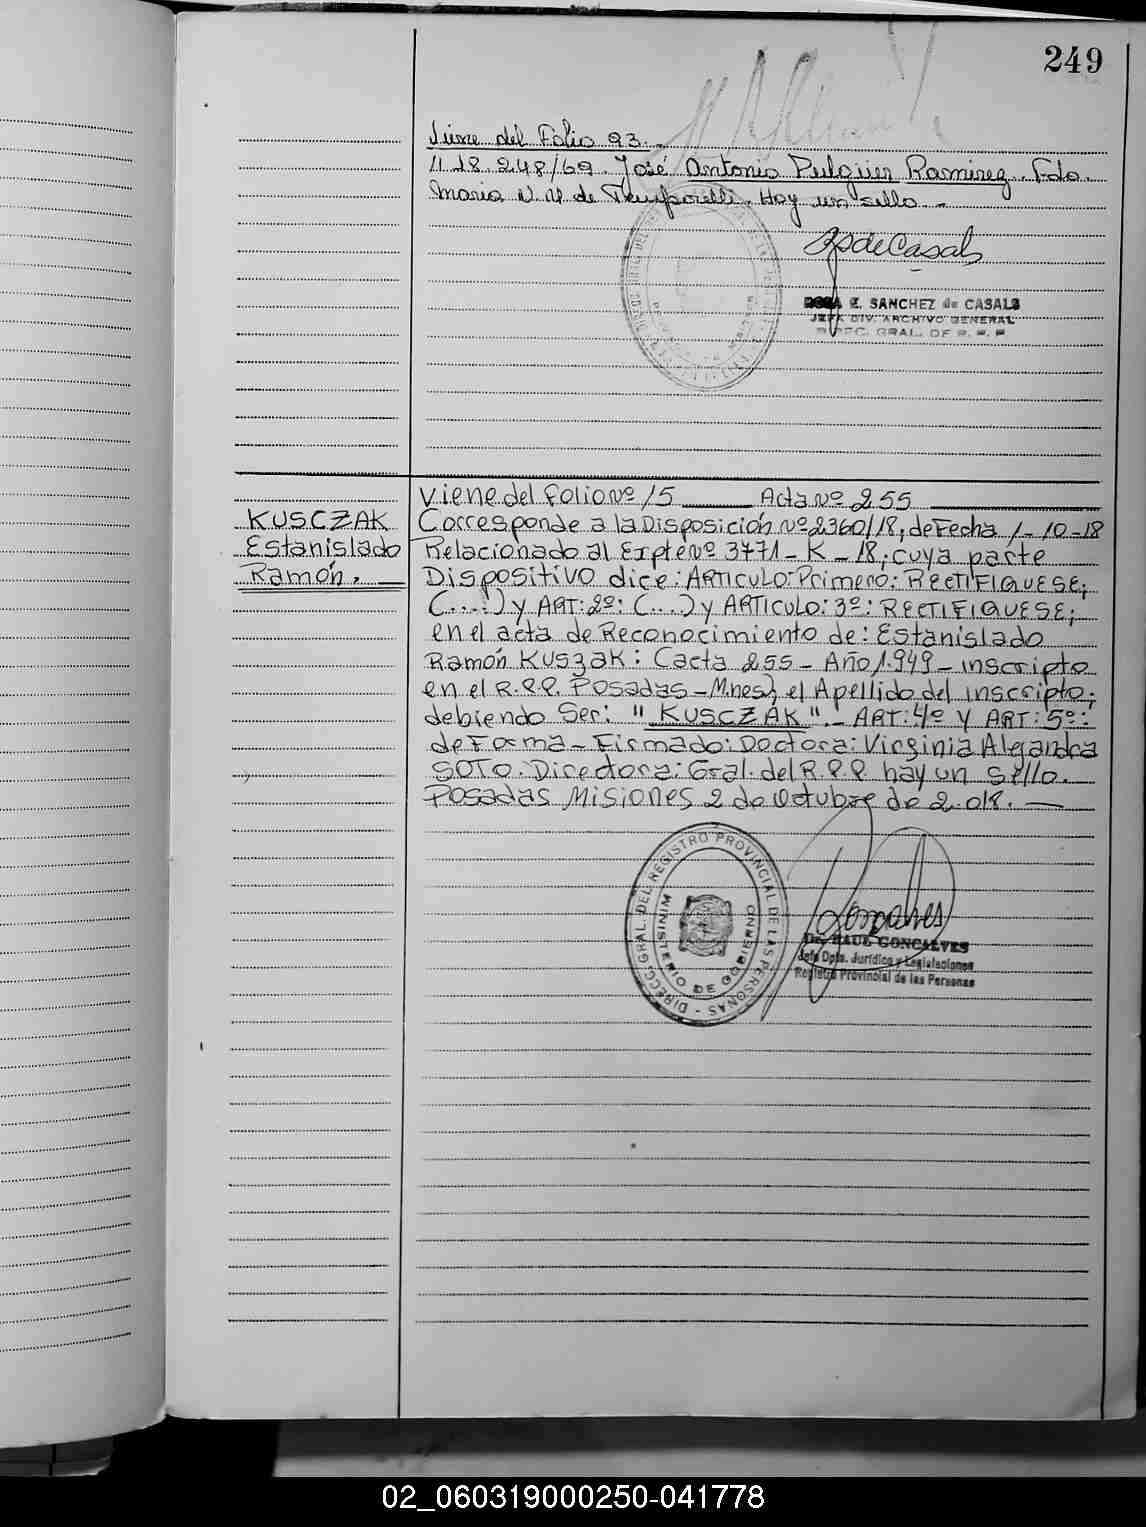 249
Viene del Folio 93.
11.28.248/69. José Antonio Pulguer Ramirez. Fdo.
Maria N. M. de Temporelli. Hay un sello. -
RpdeCasals
ROSA E. SANCHEZ de CASALS
JEFA DIV. ARCHIVO GENERAL
DIREC. GRAL. DE R. P. P.
KUSCZAK
Estanislado
Ramón. —
Viene del folio Nº 15 —— Acta Nº 255 ——
Corresponde a la Disposición Nº 2360/18, de Fecha 1-10-18
Relacionado al Expte Nº 3471-K-18; cuya parte
Dispositivo dice: ARTICULO: Primero: RECTIFIQUESE;
(....:) y ART: 2º: (....) y ARTICULO: 3º: RECTIFIQUESE;
en el acta de Reconocimiento de: Estanislado
Ramón KUSZAK: Cacta 255 - Año 1.949 - inscripto
en el R.P.P. Posadas - Mnes), el Apellido del inscripto;
debiendo Ser: "KUSCZAK". - ART: 4º y ART: 5º:
de Forma - Firmado: Doctora: Virginia Alejandra
SOTO. Directora: Gral. del R.P.P. hay un Sello.
Posadas Misiones 2 de Octubre de 2.018. —
DIRECC. GRAL. DEL REGISTRO PROVINCIAL DE LAS PERSONAS -
MINISTERIO DE GOBIERNO
Goncalves
Dr. RAUL GONCALVES
Jefe Dpto. Jurídico y Legislaciones
Registro Provincial de las Personas
02_060319000250-041778